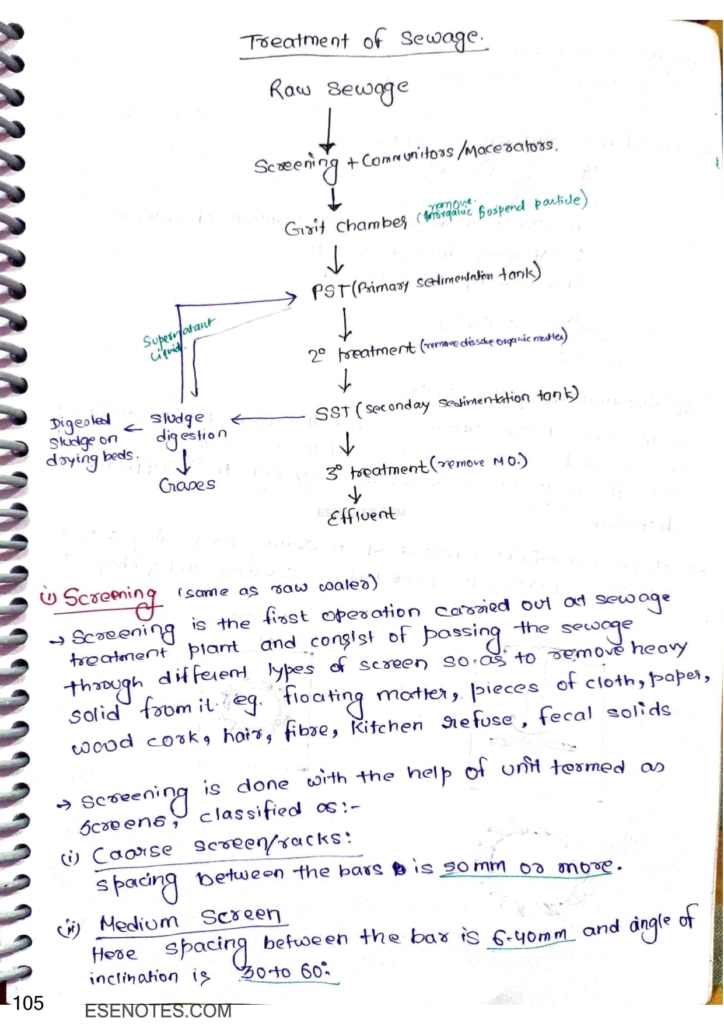 Treatment of Sewage.
Raw Sewage
Screening + Communitors /Macerators.
Grit Chamber (remove inorganic suspend particle)
PST (Primary sedimentation tank)
Supernatant
Liquid.
2° treatment (remove dissolve organic matter)
SST (Seconday Sedimentation tank)
Sludge
digestion
Digested
Sludge on
drying beds.
Gases
3° treatment (remove MO.)
Effluent
(i) Screening (same as raw water)
→ Screening is the first operation carried out at sewage
treatment plant and consist of passing the sewage
through different types of screen so as to remove heavy
solid from it. eg. floating matter, pieces of cloth, paper,
wood cork, hair, fibre, Kitchen refuse, fecal solids
→ Screening is done with the help of unit termed as
Screens, classified as:-
(i) Coarse screen/racks:
Spacing between the bars is 50mm or more.
(ii) Medium Screen
Here spacing between the bar is 6-40mm and angle of
inclination is 30 to 60°.
105
ESENOTES.COM